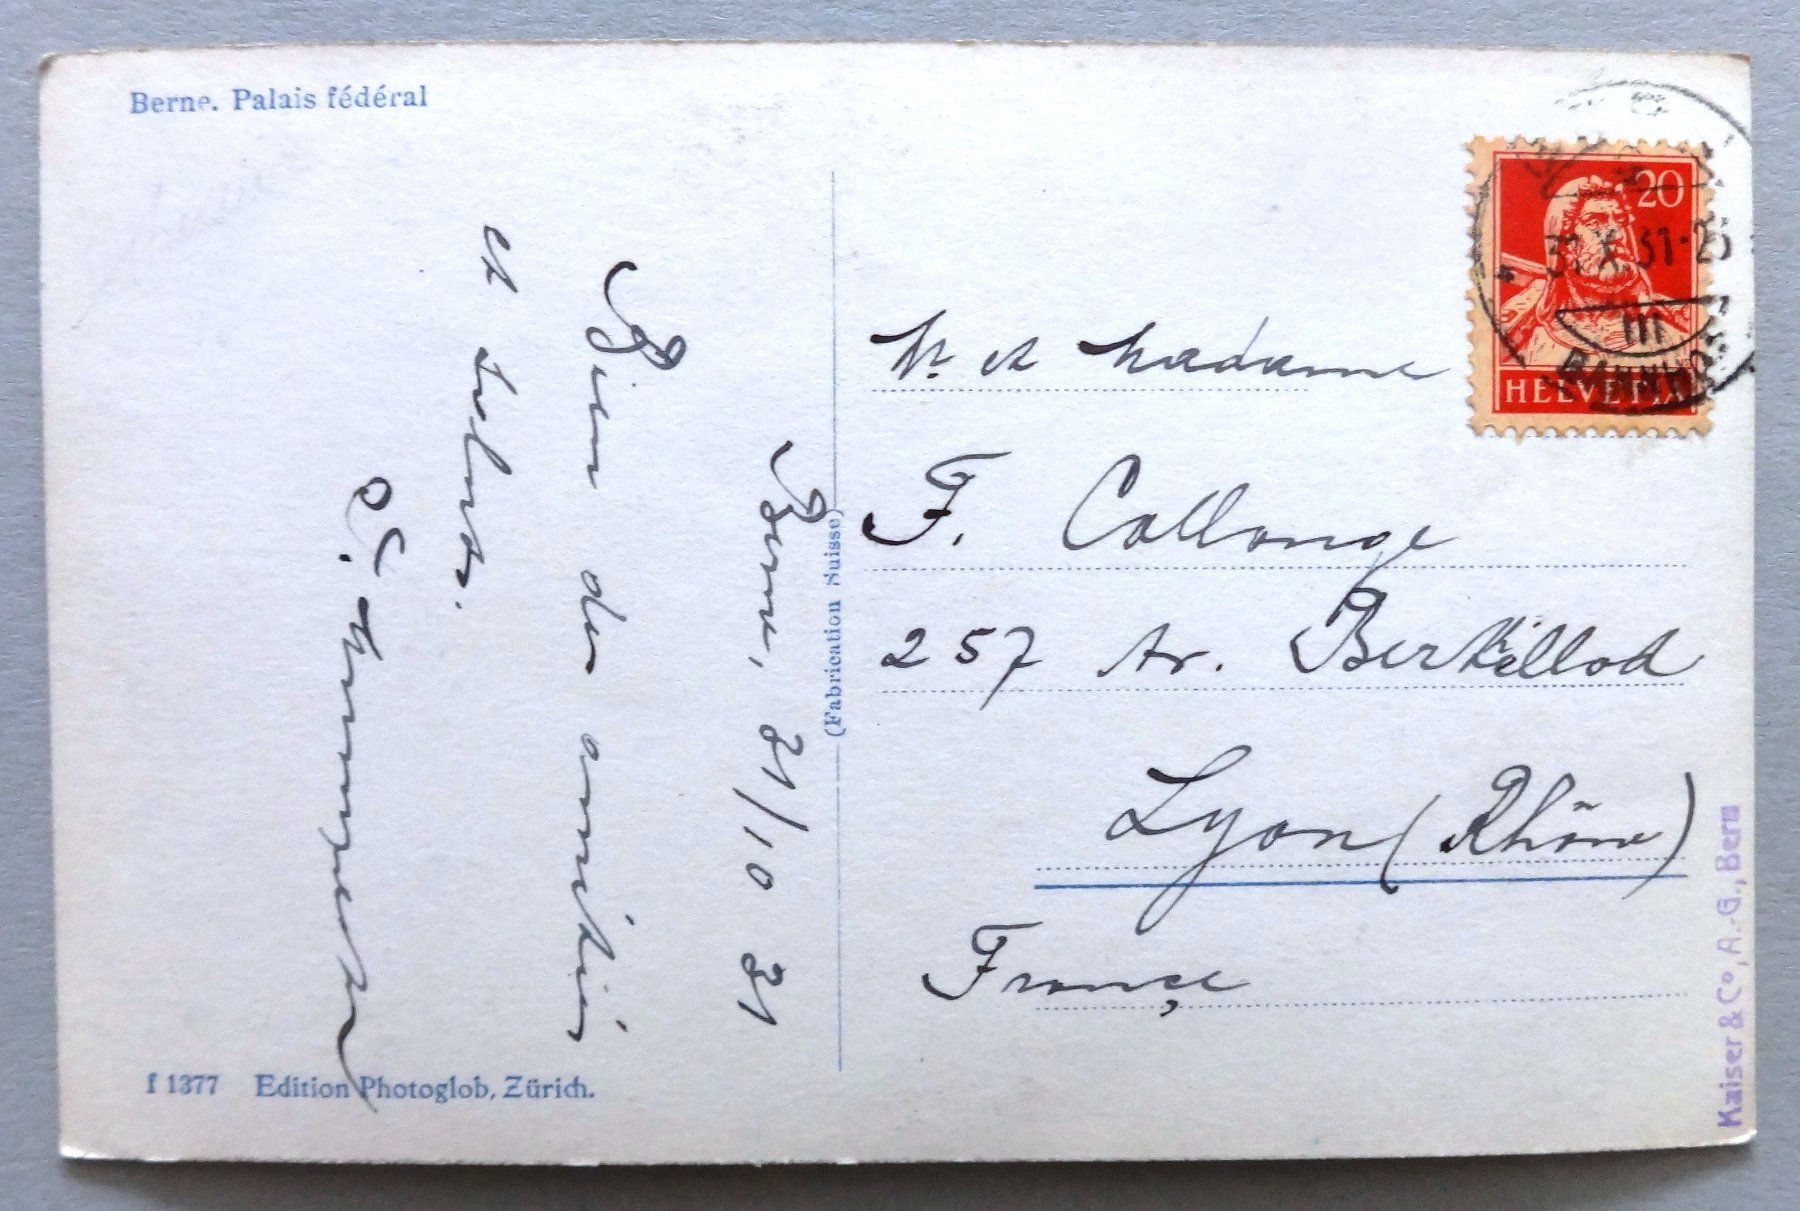 Berne. Palais fédéral
Berne, 31/10 31
Bien des amitiés
et saluts.
M. et Madame
F. Collonge
257 Av. Berthellod
Lyon (Rhône)
France
20
31.X.31-23
III
BAHNHOF
HELVETIA
(Fabrication Suisse)
f 1377 Edition Photoglob, Zürich.
Kaiser & Co, A.-G., Bern